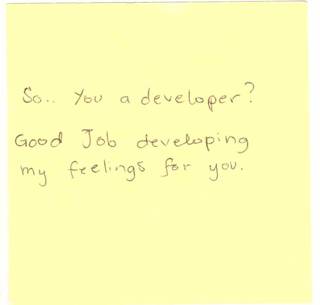 So.. You a developer?
Good Job developing
my feelings for you.